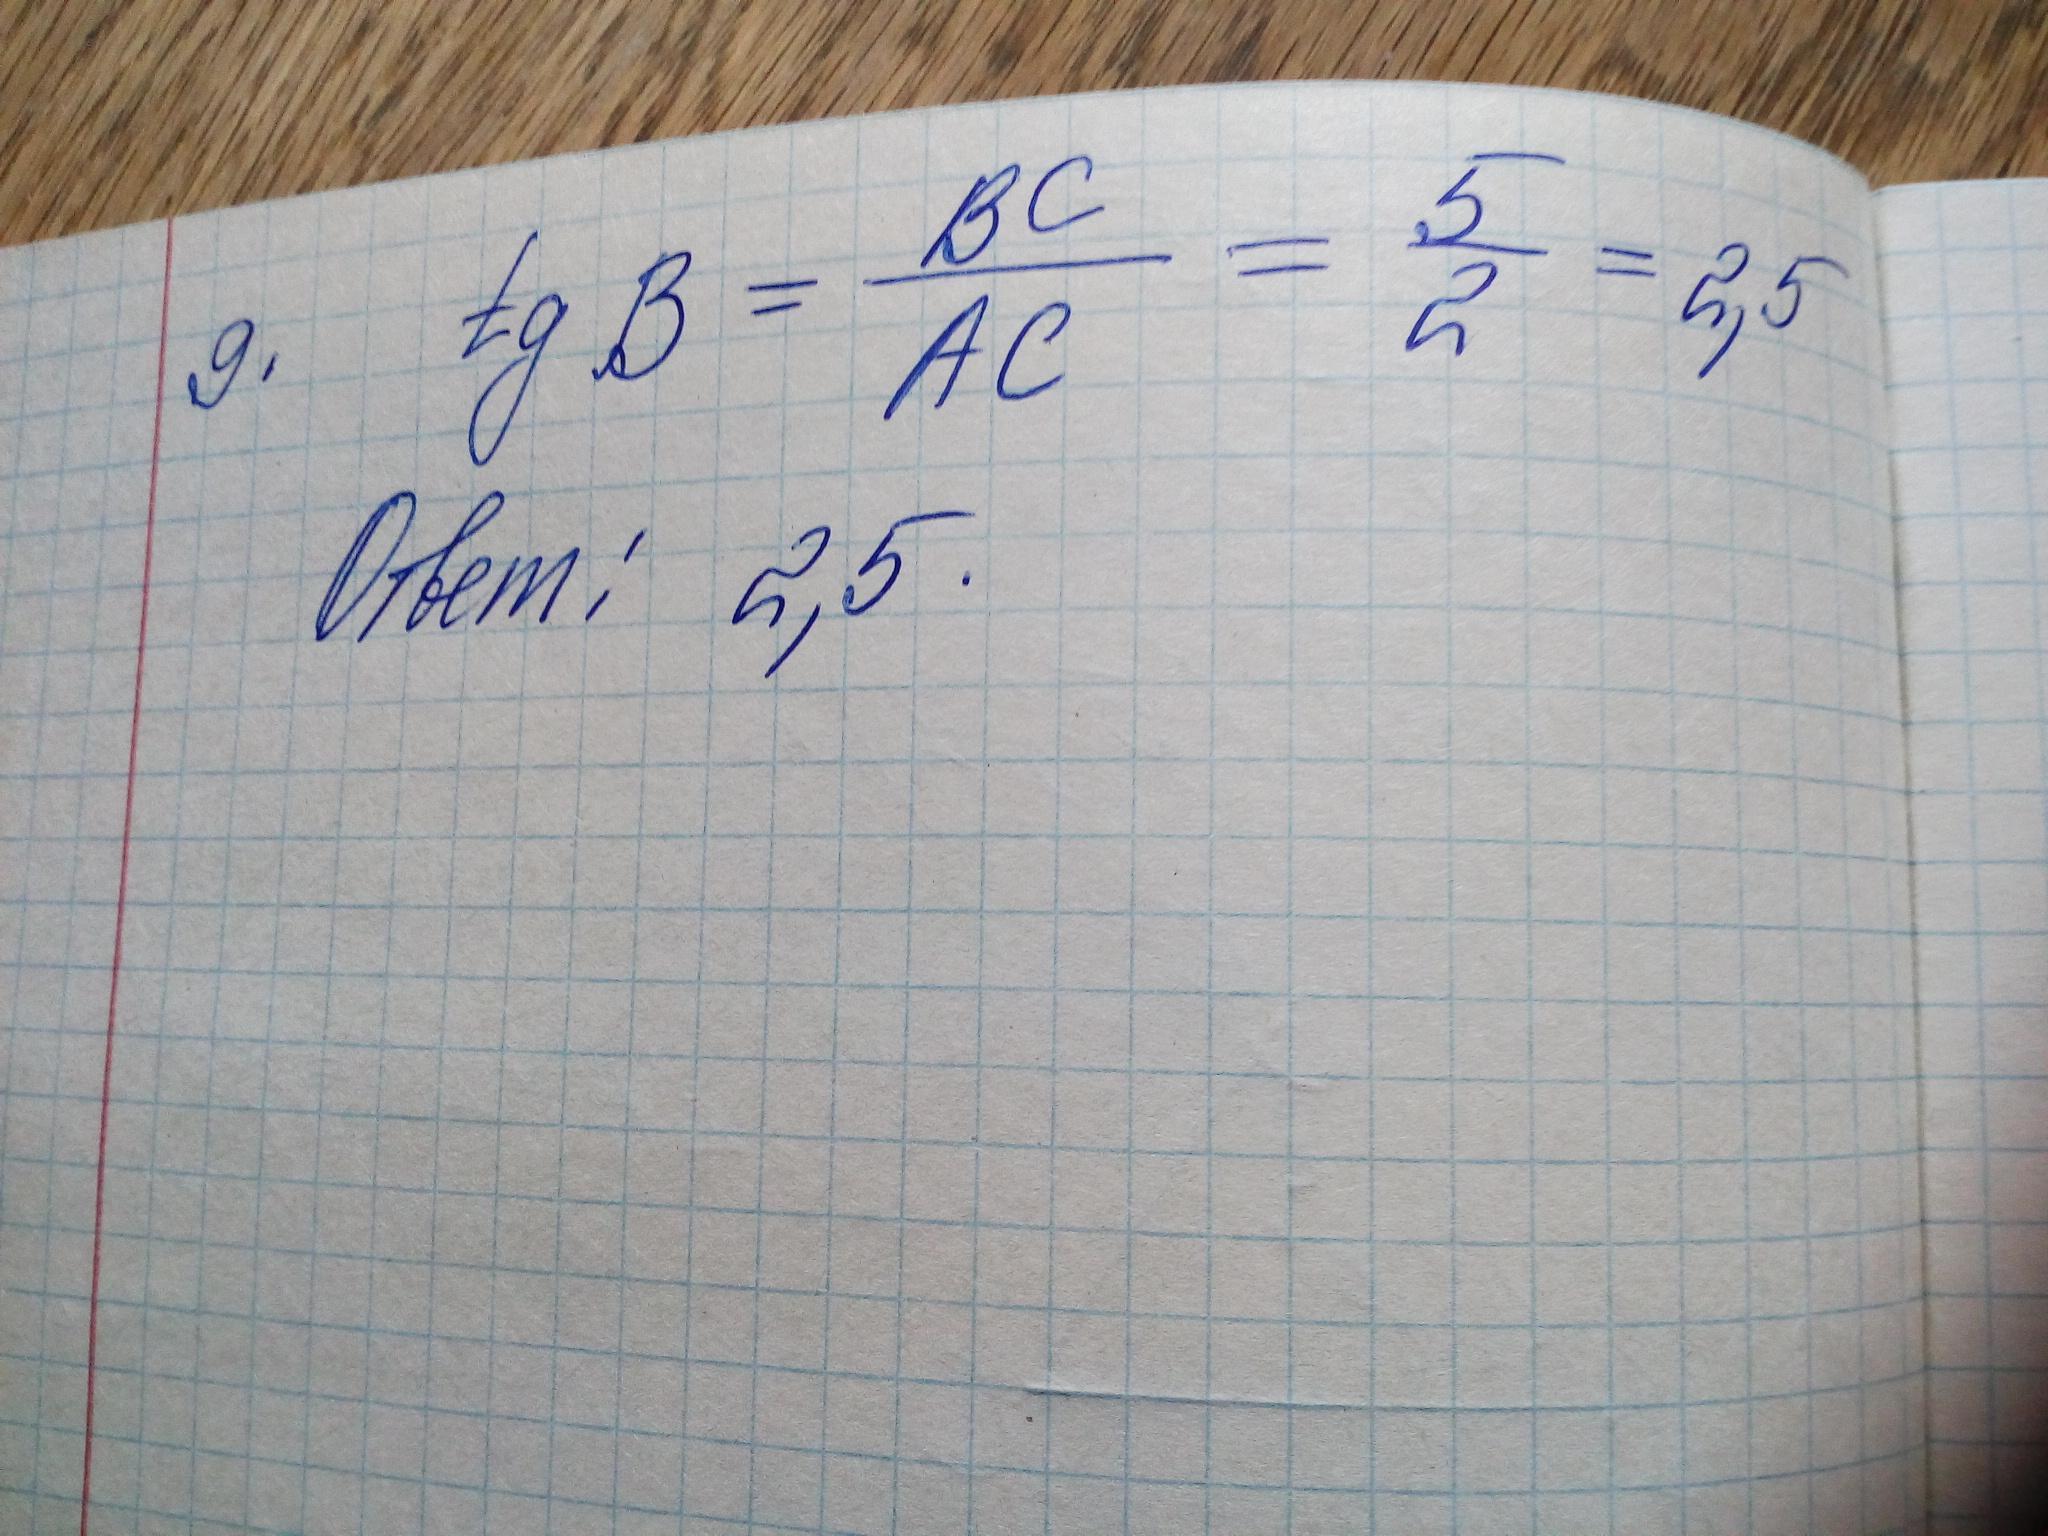 9. tg B = BC/AC = 5/2 = 2,5
Ответ: 2,5.